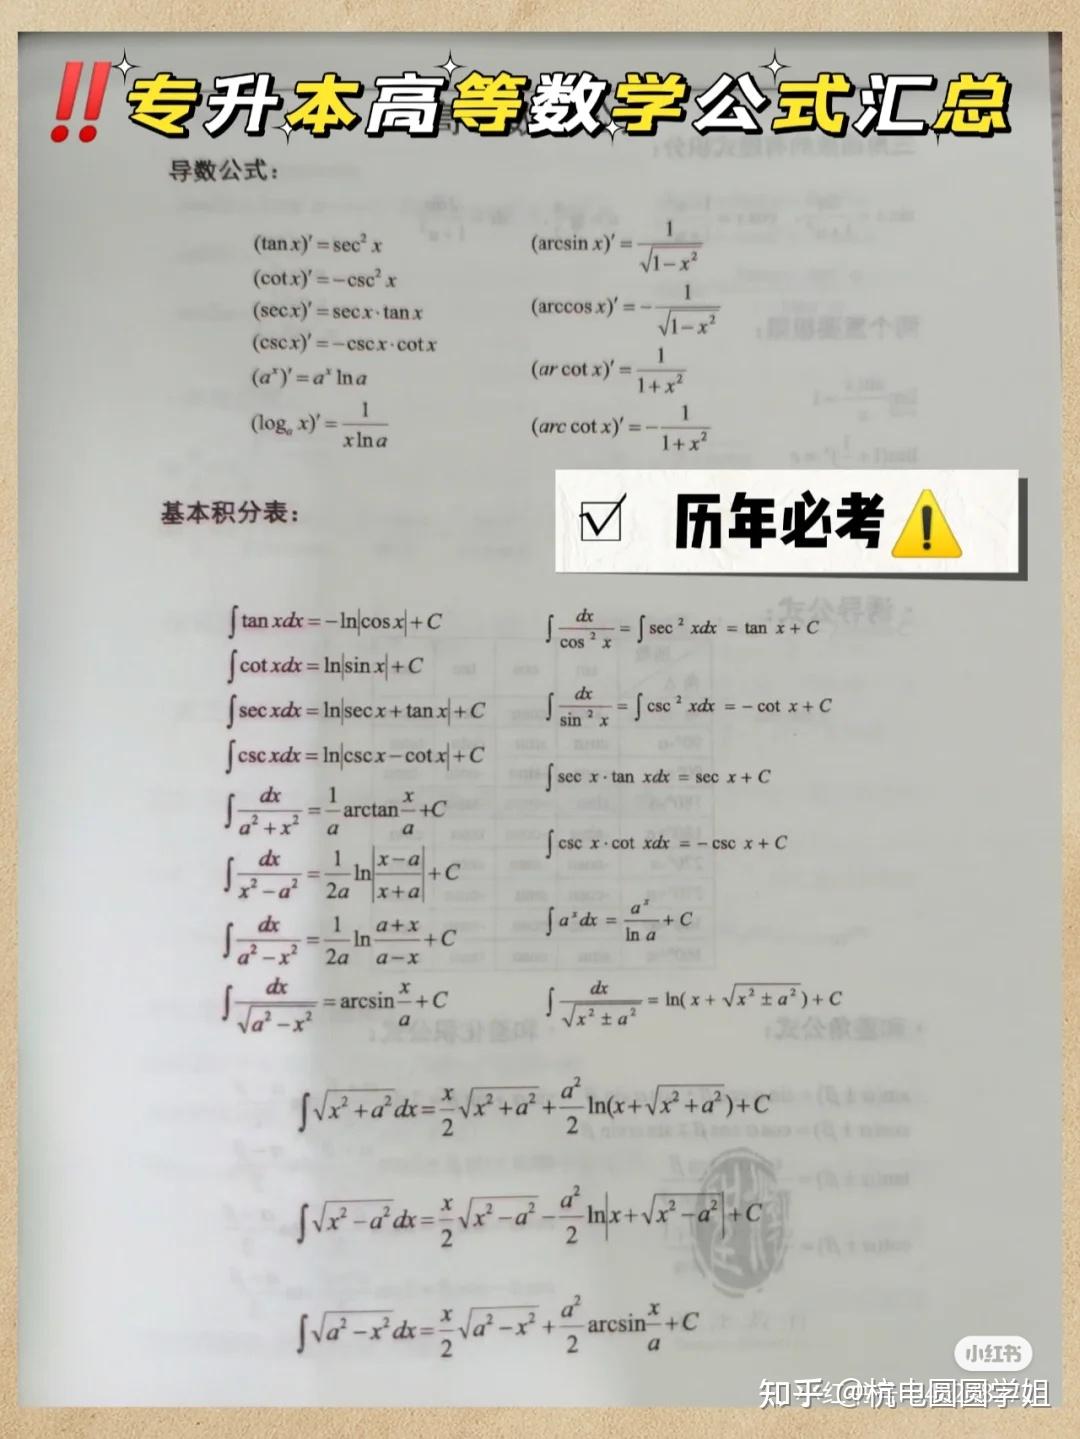 ‼专升本高等数学公式汇总
导数公式：
(tan x)′ = sec² x
(cot x)′ = −csc² x
(sec x)′ = sec x · tan x
(csc x)′ = −csc x · cot x
(aˣ)′ = aˣ ln a
(logₐ x)′ = 1/(x ln a)
(arcsin x)′ = 1/√(1−x²)
(arccos x)′ = −1/√(1−x²)
(ar cot x)′ = 1/(1+x²)
(arc cot x)′ = −1/(1+x²)
基本积分表：
☑ 历年必考⚠
∫tan xdx = −ln|cos x| + C
∫cot xdx = ln|sin x| + C
∫sec xdx = ln|sec x + tan x| + C
∫csc xdx = ln|csc x − cot x| + C
∫dx/(a²+x²) = (1/a) arctan (x/a) + C
∫dx/(x²−a²) = (1/2a) ln|(x−a)/(x+a)| + C
∫dx/(a²−x²) = (1/2a) ln (a+x)/(a−x) + C
∫dx/√(a²−x²) = arcsin (x/a) + C
∫dx/cos² x = ∫sec² xdx = tan x + C
∫dx/sin² x = ∫csc² xdx = − cot x + C
∫sec x · tan xdx = sec x + C
∫csc x · cot xdx = − csc x + C
∫aˣdx = aˣ/ln a + C
∫dx/√(x² ± a²) = ln( x + √(x² ± a²) ) + C
∫√(x²+a²) dx = (x/2)√(x²+a²) + (a²/2) ln(x+√(x²+a²)) + C
∫√(x²−a²) dx = (x/2)√(x²−a²) − (a²/2) ln|x+√(x²−a²)| + C
∫√(a²−x²) dx = (x/2)√(a²−x²) + (a²/2) arcsin (x/a) + C
小红书
知乎 @杭电圆圆学姐